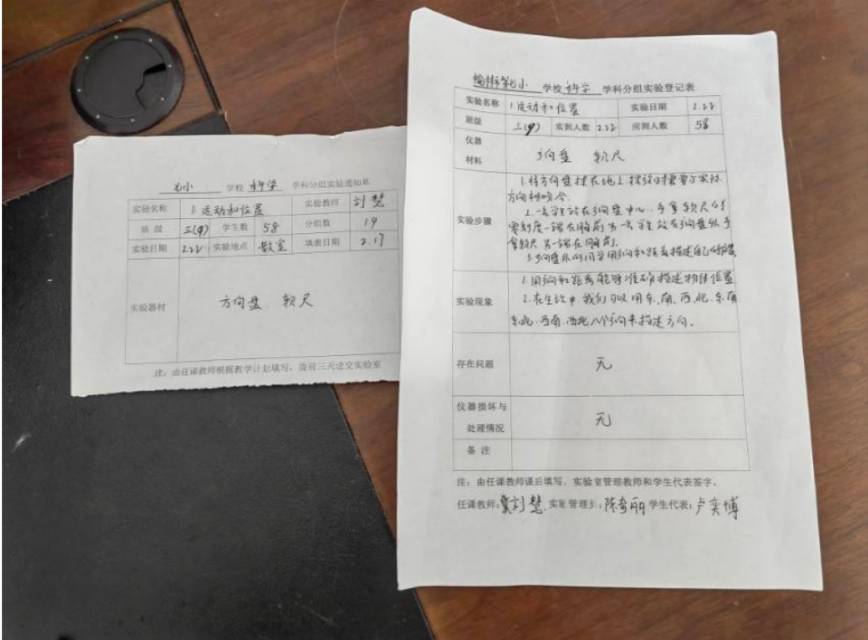 七小 学校 科学 学科分组实验通知单
实验名称 1.运动和位置 实验教师
班级 三(4) 学生数 58 分组数 19
实验日期 2.22 实验地点 教室 填表日期 2.17
实验器材 方向盘、软尺
注:由任课教师根据教学计划填写,提前三天送交实验室
学校 科学 学科分组实验登记表
实验名称 1.运动和位置 实验日期 2.22
班级 三(4) 实到人数 应到人数 58
仪器
材料 方向盘 软尺
实验步骤
1.将方向盘放在地上,
方向相吻合.
2.一名学生站在方向盘中心,手拿软尺的
零刻度一端在胸前,另一名学生站在方向盘外手
拿软尺另一端在胸前.
实验现象
1.用方向和距离能够准确描述物体位置
2.在生活中我们可以用东、南、西、北、东南
东北、西南、西北八个方向来描述方向.
存在问题 无
仪器损坏与
处理情况 无
备注
注:由任课教师课后填写,实验室管理教师和学生代表签字。
任课教师: 实验管理员: 学生代表: